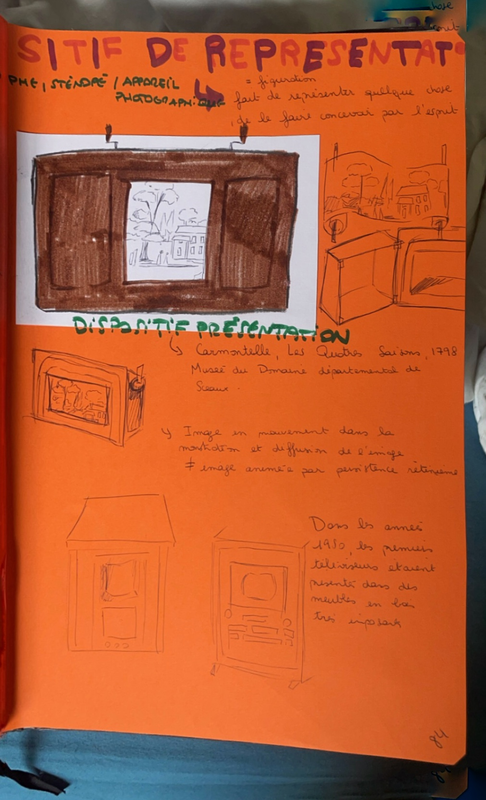 SITIF DE REPRESENTAT
PHE, STÉNOPÉ / APPAREIL
PHOTOGRAPHIQUE
= figuration
fait de représenter quelque chose
, de le faire concevoir par l'esprit
DISPOSITIF PRÉSENTATION
↳ Carmontelle, Les Quatres Saisons, 1798
Musée du Domaine départemental de
Sceaux.
↳ Image en mouvement dans la
et diffusion de l'image
≠ image animée par persistence rétinienne
Dans les années
les premiers
téléviseurs étaient
présenté dans des
meubles en bois
très imposant